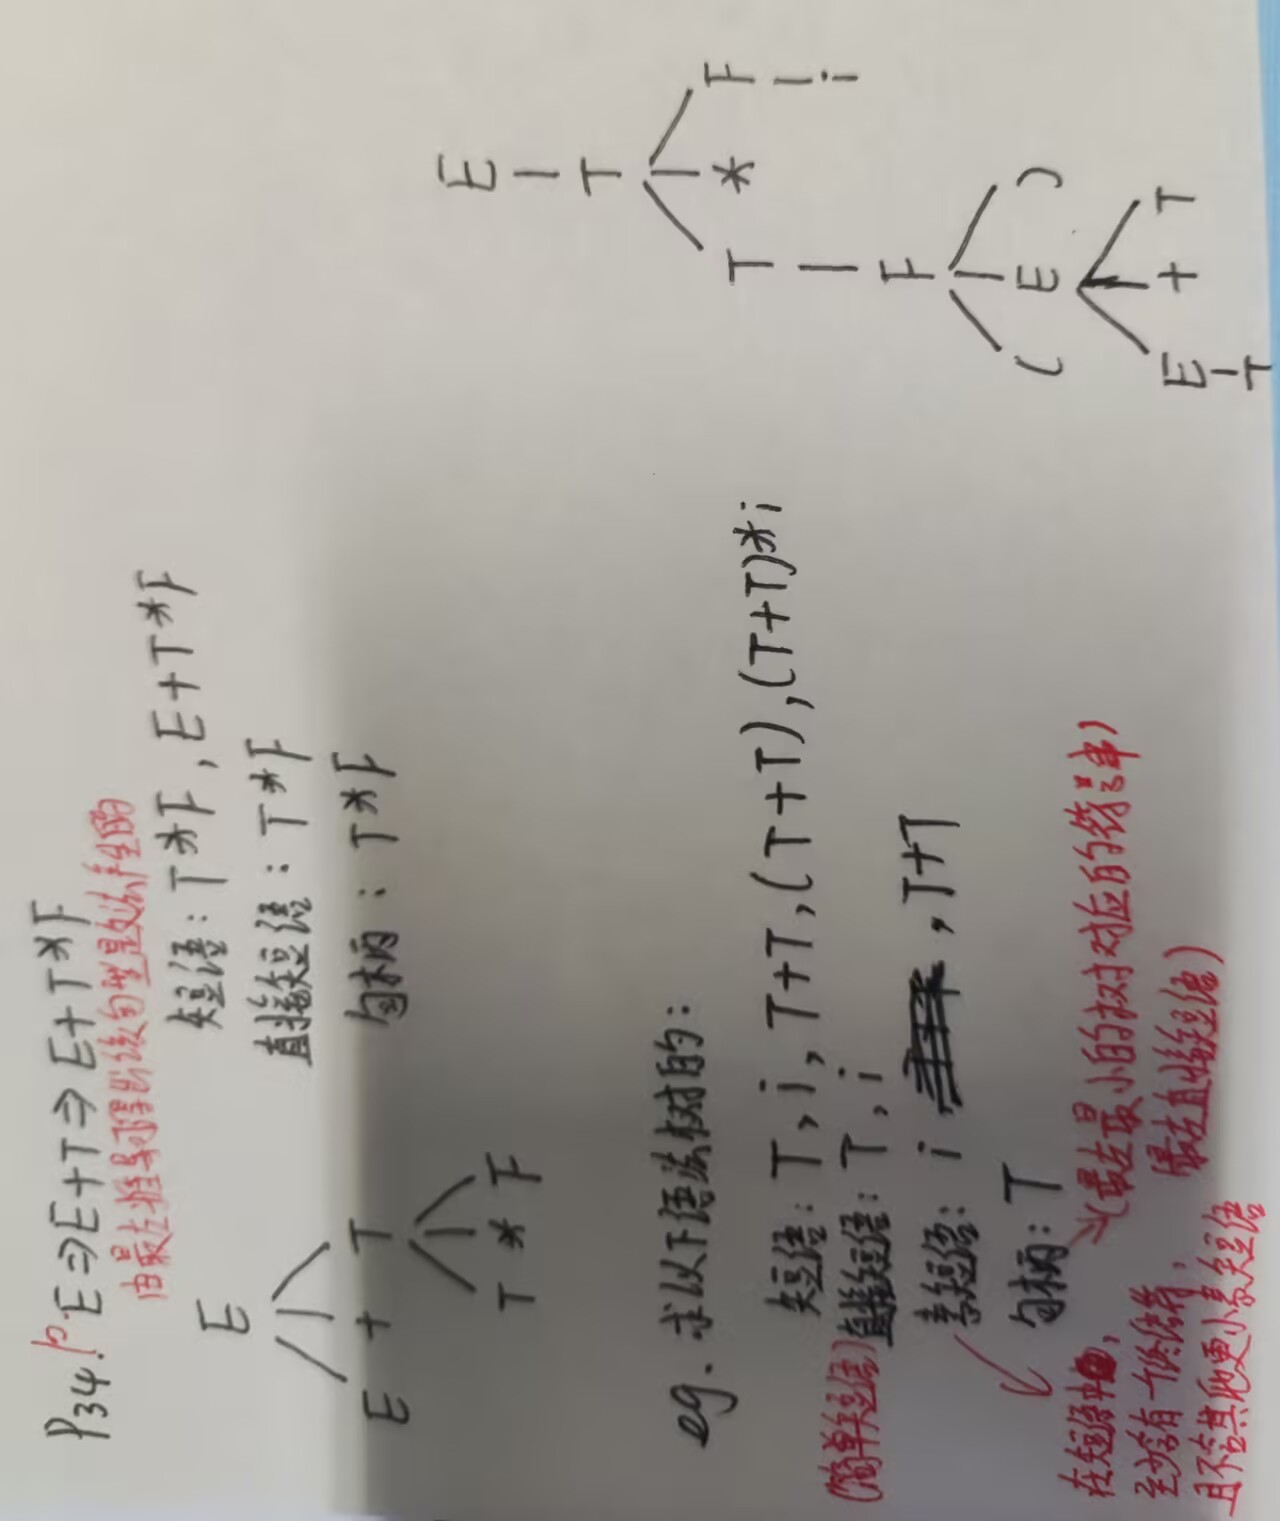 P34. 10. E⇒E+T⇒E+T*F
由最左推导推出该句型是文法产生的
短语: T*F, E+T*F
直接短语: T*F
句柄: T*F
E
E + T
T * F
eg. 求以下语法树的:
短语: T, i, T+T, (T+T), (T+T)*i
(简单短语) 直接短语: T, i
素短语: i , T+T
句柄: T
(最左最小的权对对应的符号串)
(最左直接短语)
在短语中,
至少含有一个终结符,
且不含其他更小素短语
E
T
T * F
F i
( E )
E + T
T